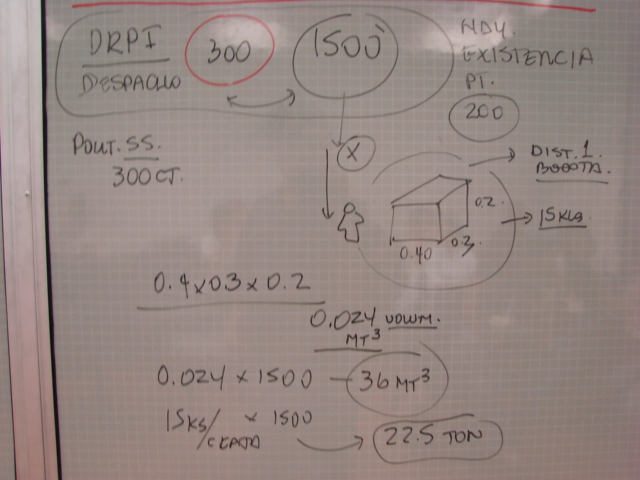 DRPI
DESPACHO
300
1500
NOV.
EXISTENCIA
PT.
200
POLIT. SS.
300 CT.
X
DIST. 1.
BOGOTA.
0.2
0.3
0.40
15 KLS.
0.4 x 0.3 x 0.2
0.024 VOLUM.
MT³
0.024 x 1500 — 36 MT³
15 KS/ x 1500
22.5 TON